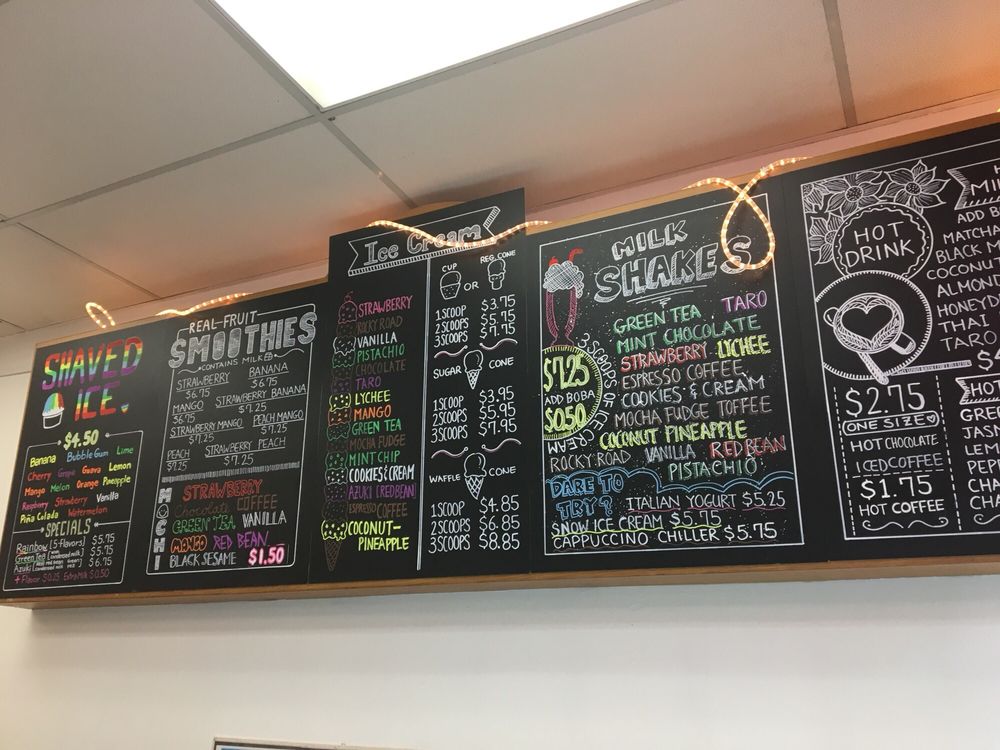 SHAVED
ICE
$4.50
Banana Bubble Gum Lime
Cherry Grape Guava Lemon
Mango Melon Orange Pineapple
Raspberry Strawberry Vanilla
Piña Colada Watermelon
SPECIALS
Rainbow (3-Flavors) $5.75
Green Tea $5.75
Azuki $6.75
+ Flavor $0.25 Extra Milk $0.50
REAL-FRUIT
SMOOTHIES
CONTAINS MILK
STRAWBERRY BANANA
$6.75 $6.75
MANGO STRAWBERRY BANANA
$6.75 $7.25
STRAWBERRY MANGO PEACH MANGO
$7.25 $7.25
PEACH STRAWBERRY PEACH
$7.25 $7.25
MOCHI
STRAWBERRY
Chocolate COFFEE
GREEN TEA, VANILLA
MANGO RED BEAN
BLACK SESAME $1.50
Ice Cream
STRAWBERRY
ROCKY ROAD
VANILLA
PISTACHIO
CHOCOLATE
TARO
LYCHEE
MANGO
GREEN TEA
MOCHA FUDGE
MINT CHIP
COOKIES & CREAM
AZUKI (REDBEAN)
ESPRESSO COFFEE
COCONUT-
PINEAPPLE
CUP OR REG. CONE
1 SCOOP $3.75
2 SCOOPS $5.75
3 SCOOPS $7.75
SUGAR CONE
1 SCOOP $3.95
2 SCOOPS $5.95
3 SCOOPS $7.95
WAFFLE CONE
1 SCOOP $4.85
2 SCOOPS $6.85
3 SCOOPS $8.85
MILK
SHAKES
$7.25
ADD BOBA
$0.50
3 SCOOPS OF ICE CREAM
GREEN TEA TARO
MINT CHOCOLATE
STRAWBERRY LYCHEE
ESPRESSO COFFEE
COOKIES & CREAM
MOCHA FUDGE TOFFEE
COCONUT PINEAPPLE
ROCKY ROAD VANILLA RED BEAN
PISTACHIO
DARE TO
TRY?
ITALIAN YOGURT $5.25
SNOW ICE CREAM $5.75
CAPPUCCINO CHILLER $5.75
HOT
DRINK
$2.75
ONE SIZE
HOT CHOCOLATE
ICED COFFEE
$1.75
HOT COFFEE
ADD B
MATCHA
BLACK M
COCONUT
ALMON
HONEYD
THAI
TARO
HOT
GREE
JASM
LEM
PEP
CHA
CHA